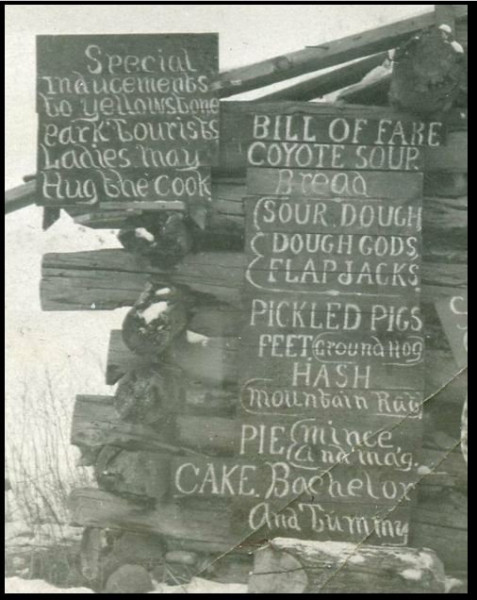 Special
inducements
to yellowstone
park tourists
Ladies may
Hug the Cook
BILL OF FARE
COYOTE SOUP.
Bread
SOUR DOUGH
DOUGH GODS,
FLAPJACKS.
PICKLED PIGS
FEET Ground Hog
HASH
Mountain Rat
PIE mince
and
CAKE. Bachelor
And Tummy